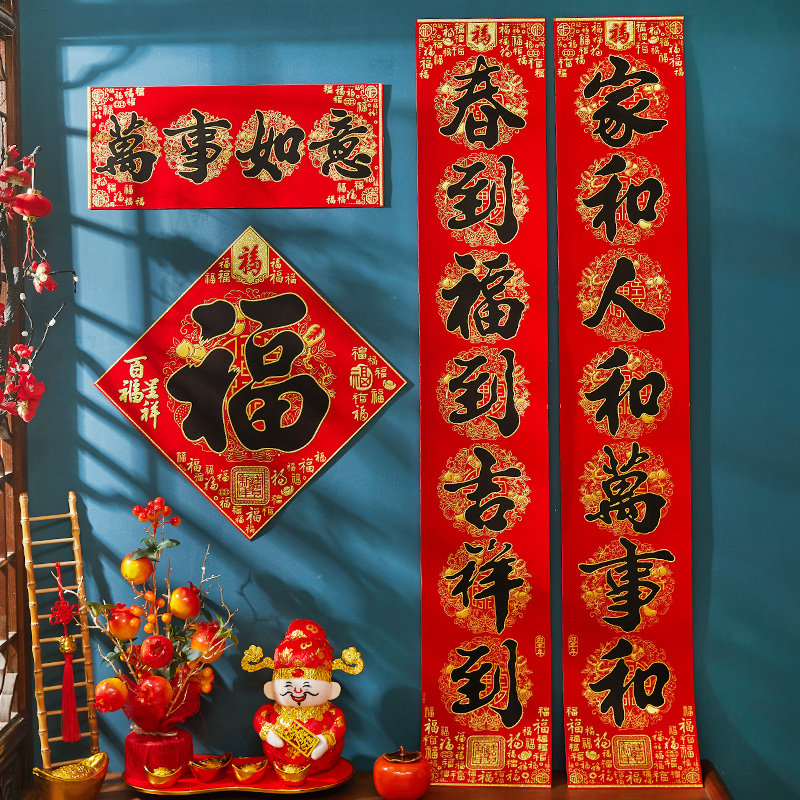 萬事如意
福
福
百福呈祥
福
春到福到吉祥到
福
家和人和萬事和